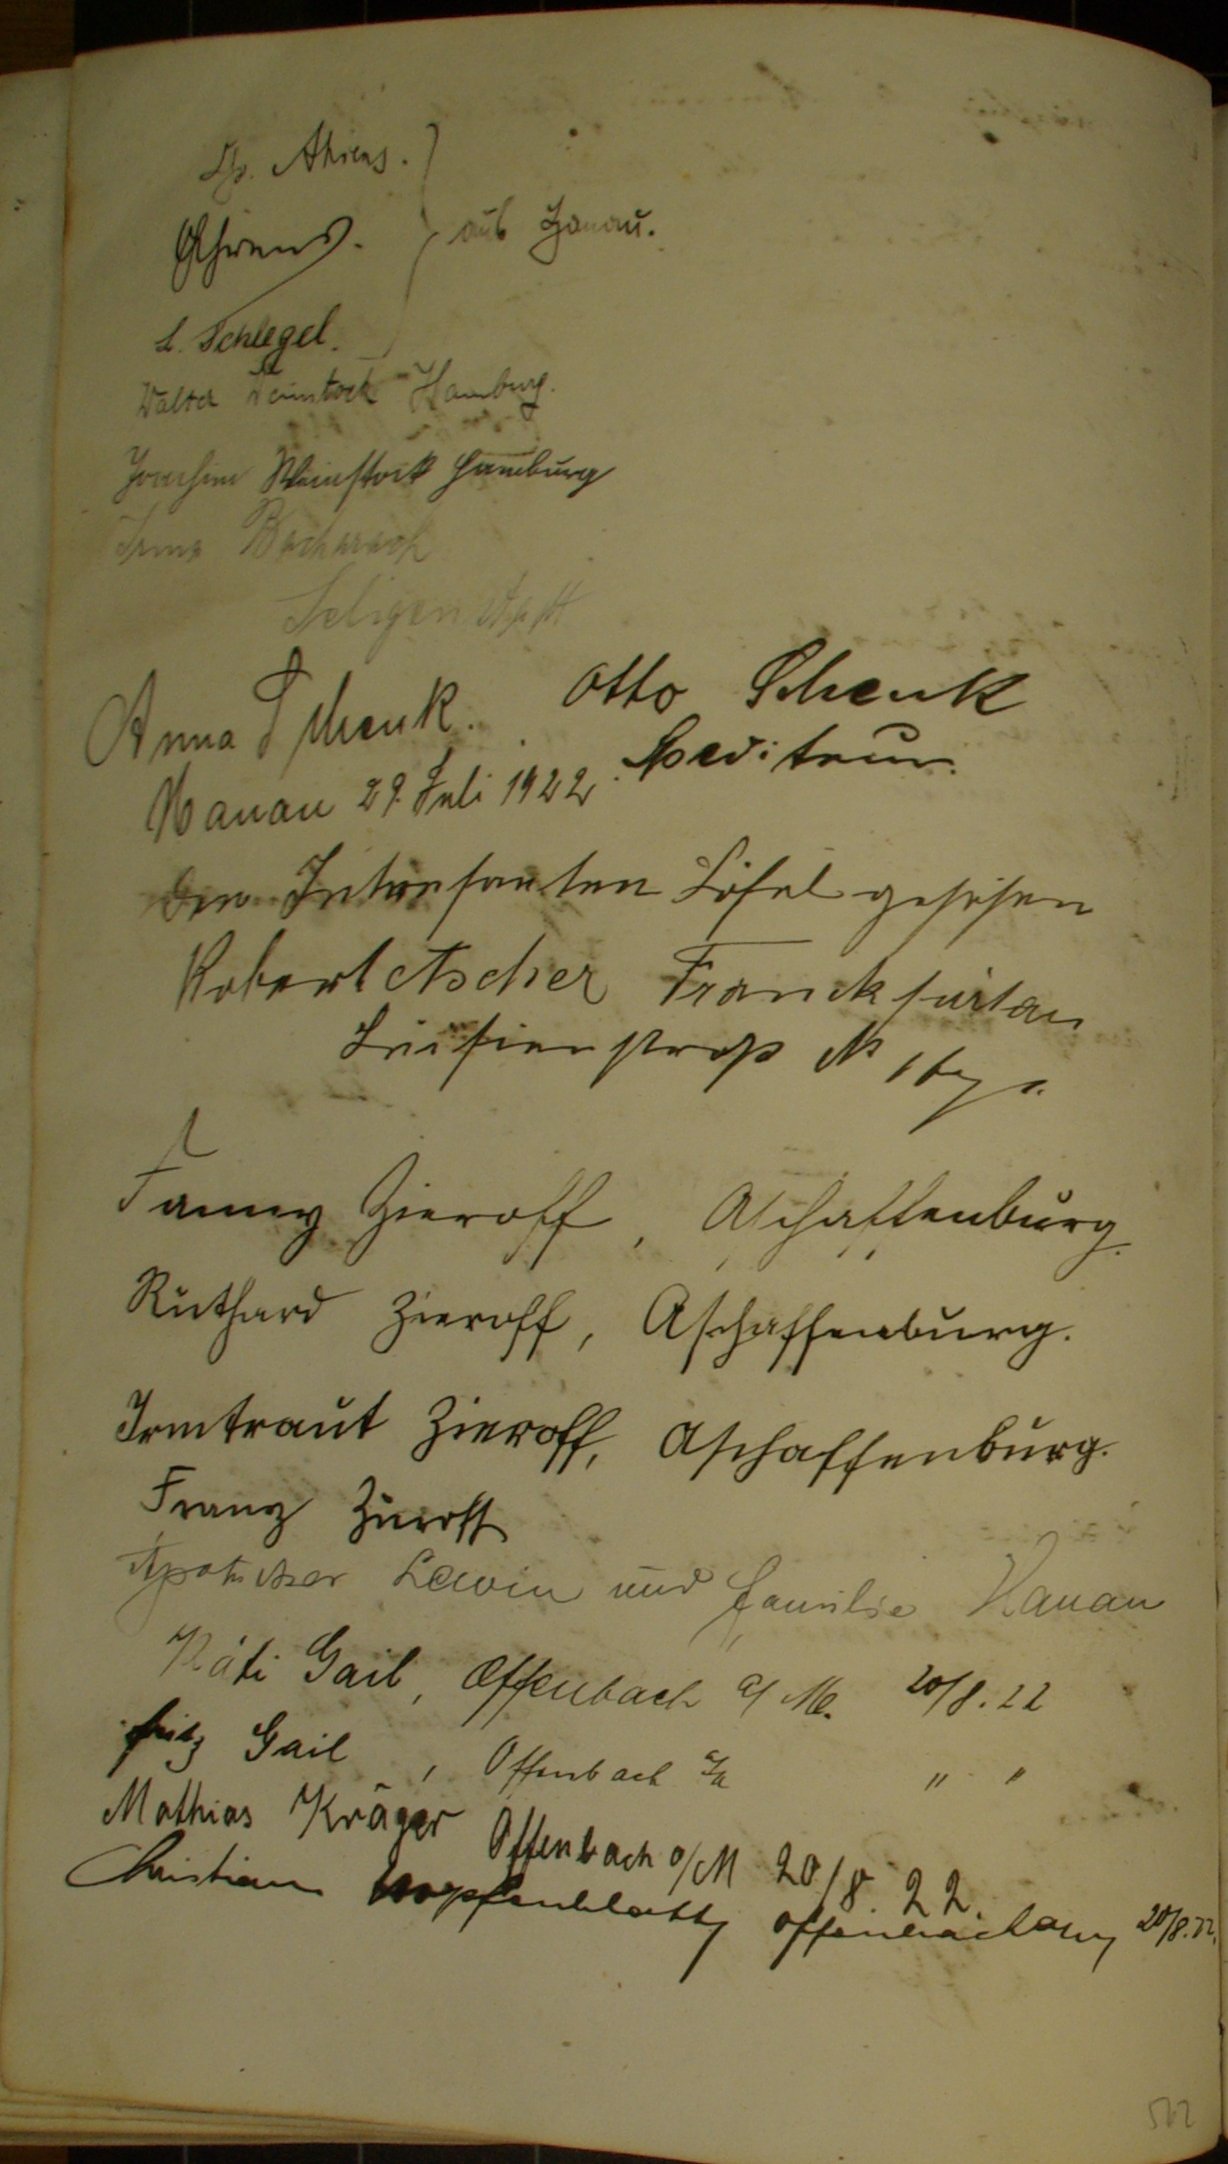 Ahrens.
Ahrens. } aus Hanau.
L. Schlegel.
Walter Weinstock Hamburg.
Joachim Weinstock Hamburg
Irma Bacharach
Seligenstadt
Otto Schenk
Anna Schenk.
Spediteur.
Hanau 29. Juli 1922
Den Intresanten Löfel gesehen
Robert Ascher Franckfurtan
Luisienstraß No
Fanny Zieroff, Aschaffenburg.
Ruthard Zieroff, Aschaffenburg.
Irmtraut Zieroff, Aschaffenburg.
Franz Zieroff
Apotheker Lewin und Familie Hanau
Käti Gail, Offenbach a/M. 20/8.22
Fritz Gail, Offenbach a/M " "
Mathias Kräger Offenbach a/M 20/8.22.
Christian Hopfenblatt Offenbach a/M 20/8.22.
512